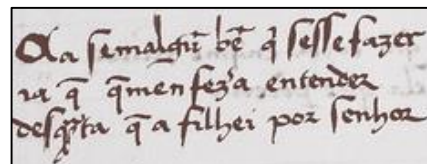 Aa semalgũ bẽ q̃ sesse fazer
ia q̃ q̃men feza entender
desq̃sta q̃ a filhei por senhor